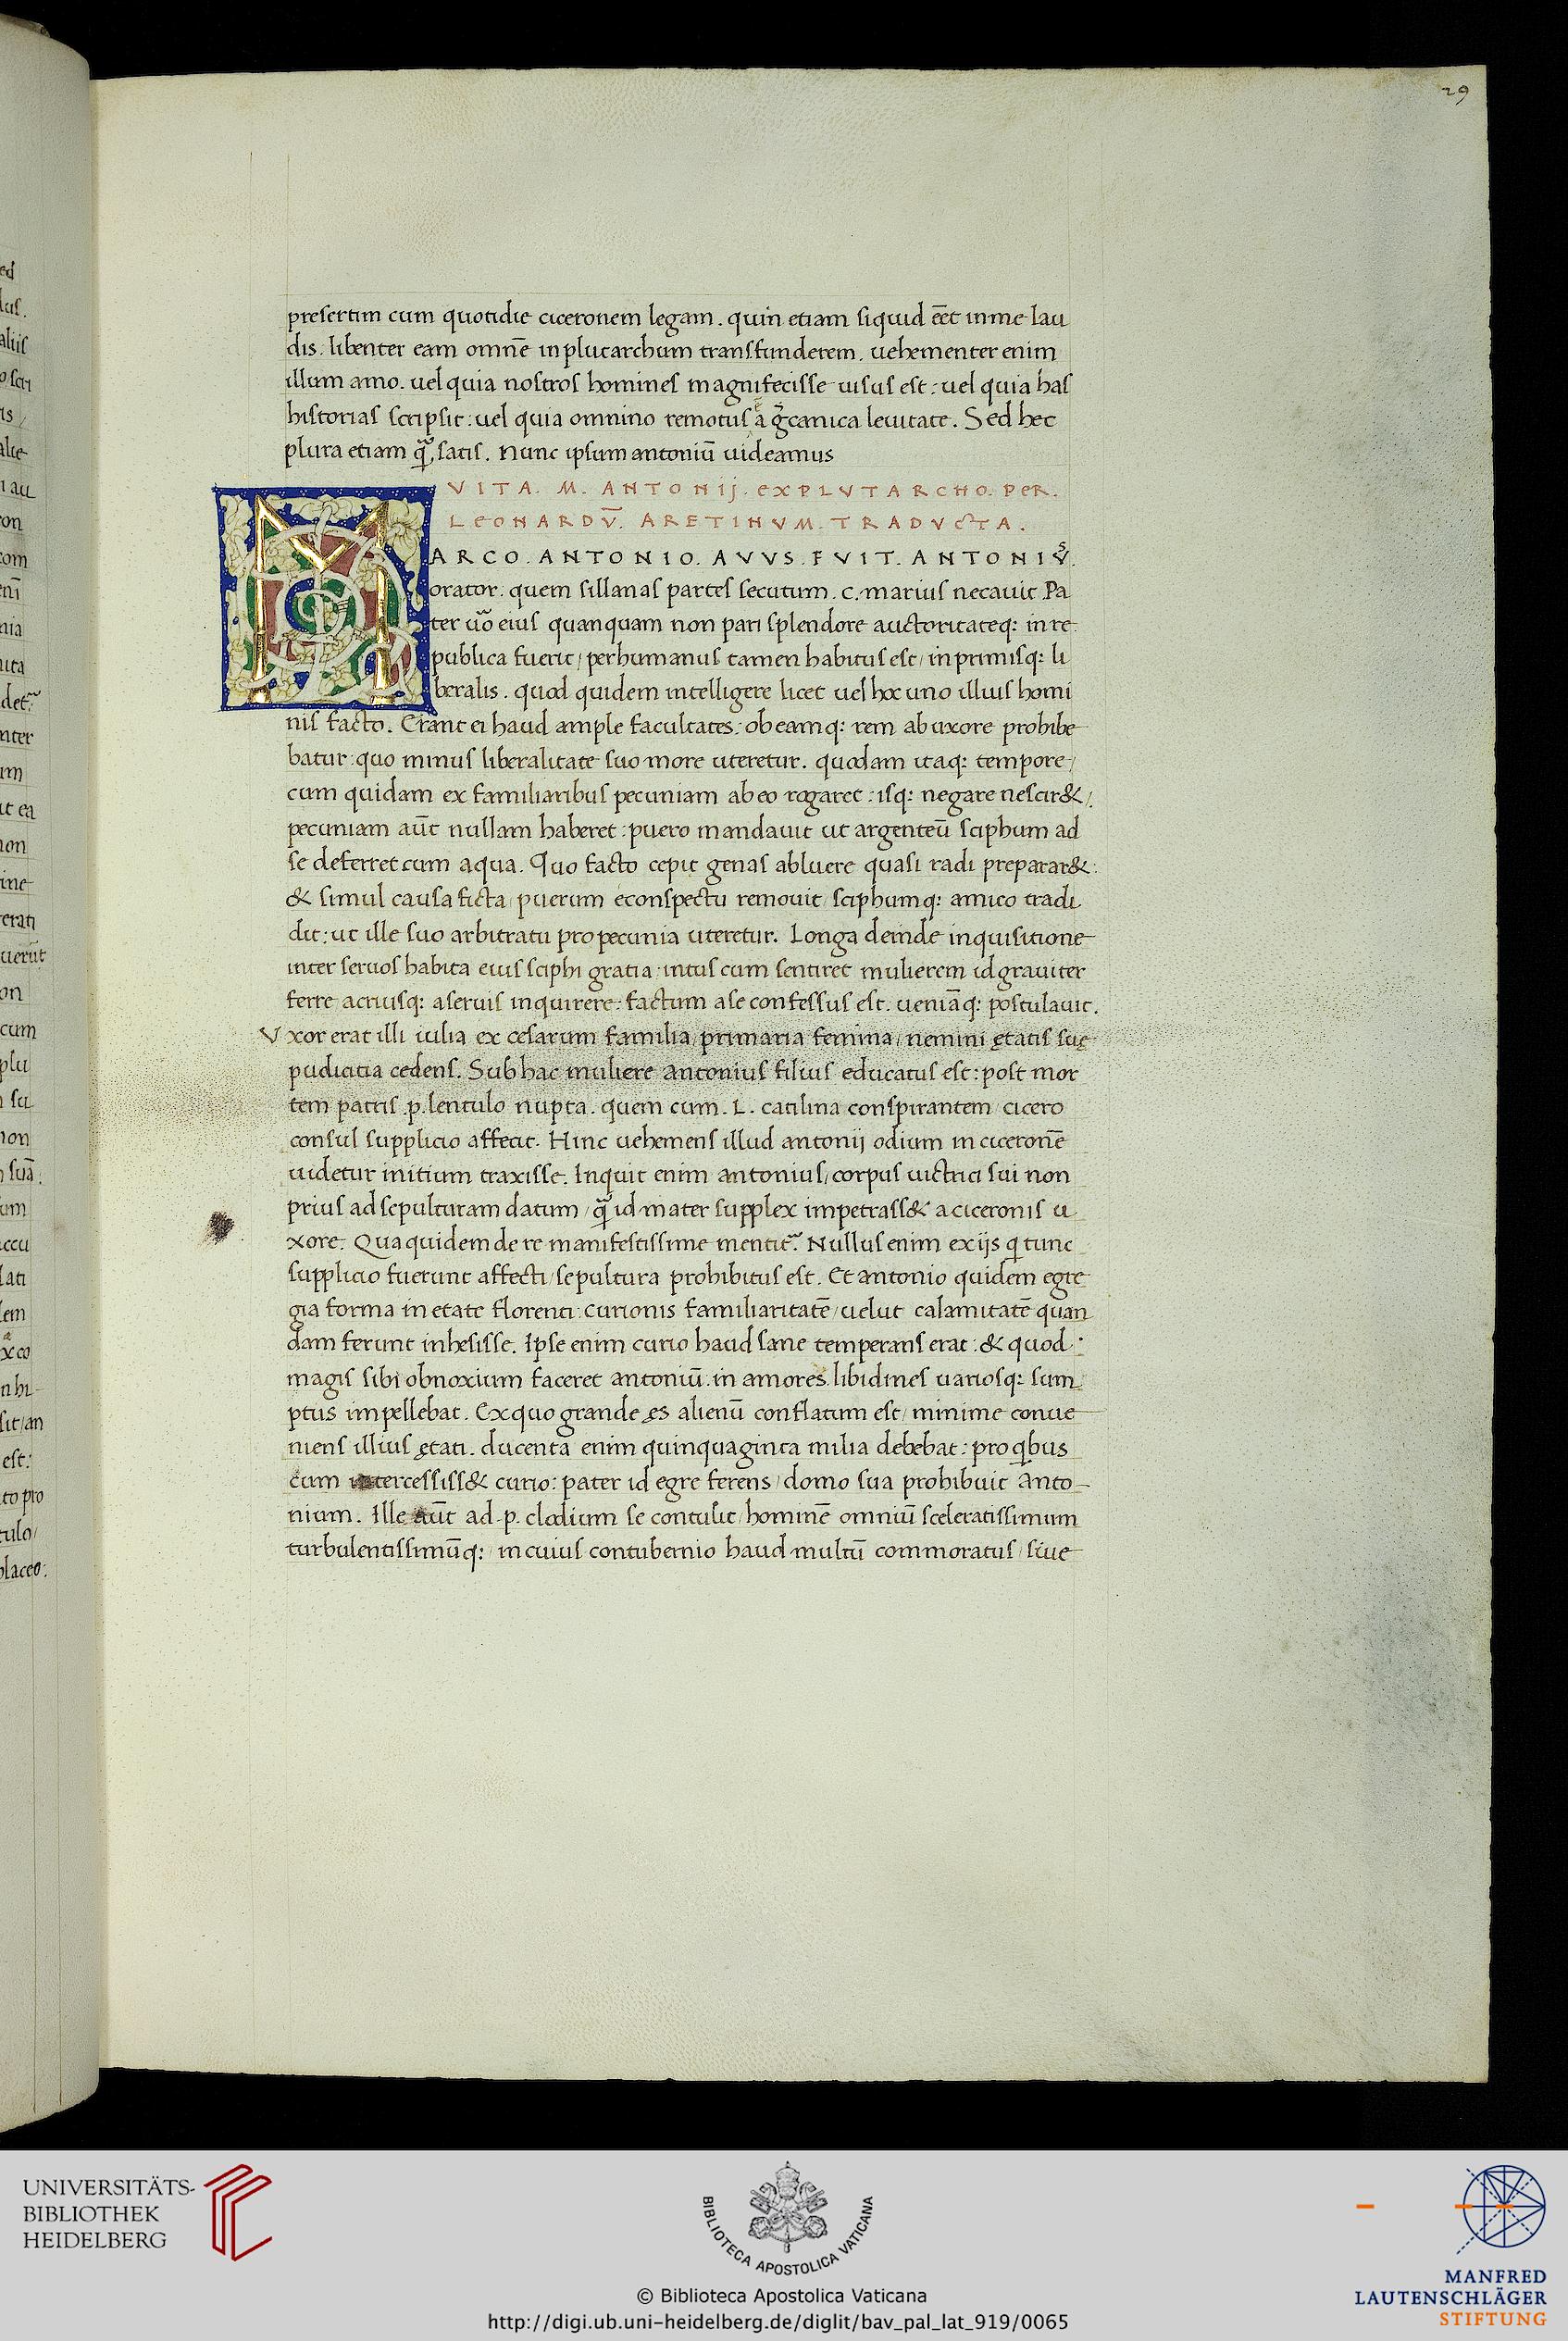 29
presertim cum quotidie ciceronem legam. quin etiam siquid eēt inme lau
dis. libenter eam omnē inplutarchum transfunderem. uehementer enim
illum amo. uel quia nostros homines magnifecisse uisus est: uel quia has
historias scripsit: uel quia omnino remotus a g̃canica leuitate. Sed hec
plura etiam q̃ satis. Nunc ipsum antoniū uideamus
VITA. M. ANTONIJ. EXPLVTARCHO. PER.
LEONARDV̄. ARETINVM. TRADVCTA.
MARCO. ANTONIO. AVVS. FVIT. ANTONIVS.
orator. quem sillanas partes secutum. c. marius necauit. Pa
ter uo eius quanquam non pari splendore auctoritateq: in re
publica fuerit/ perhumanus tamen habitus est/ inprimisq: li
beralis. quod quidem intelligere licet uel hoc uno illius homi
nis facto. Erant ei haud ample facultates: ob eamq: rem ab uxore prohibe
batur: quo minus liberalitate suo more uteretur. quodam itaq: tempore/
cum quidam ex familiaribus pecuniam ab eo rogaret: isq: negare nescir&/.
pecuniam aūt nullam haberet: puero mandauit ut argenteū sciphum ad
se deferret cum aqua. Quo facto cepit genas abluere quasi radi preparar&:
& simul causa ficta/ puerum econspectu remouit/ sciphumq: amico tradi
dit: ut ille suo arbitratu pro pecunia uteretur. Longa deinde inquisitione
inter seruos habita eius sciphi gratia: intus cum sentiret mulierem id grauiter
ferre acriusq: aseruis inquirere: factum ase confessus est. ueniāq: postulauit.
Vxor erat illi iulia ex cesarum familia/ primaria femina/ nemini ętatis suę
pudicitia cedens. Sub hac muliere antonius filius educatus est: post mor
tem patris .p. lentulo nupta. quem cum. L. catilina conspirantem/ cicero
consul supplicio affecit. Hinc uehemens illud antonij odium in ciceronē
uidetur initium traxisse. Inquit enim antonius/ corpus uictrici sui non
prius ad sepulturam datum/ q̃ id mater supplex impetrass& a ciceronis u
xore. Qua quidem de re manifestissime mentit̃. Nullus enim ex ijs q tunc
supplicio fuerunt affecti/ sepultura prohibitus est. Et antonio quidem egre
gia forma in etate florenti: curionis familiaritatē/ uelut calamitatē quan
dam ferunt inhesisse. Ipse enim curio haud sane temperans erat: & quod
magis sibi obnoxium faceret antoniū. in amores libidines uariosq: sum
ptus impellebat. Ex quo grande ęs alienū conflatum est/ minime conue
niens illius ętati. ducenta enim quinquaginta milia debebat: pro qbus
cum intercessiss& curio: pater id egre ferens/ domo sua prohibuit Anto
nium. Ille aūt ad .p. clodium se contulit/ hominē omniū sceleratissimum
turbulentissimūq: in cuius contubernio haud multū commoratus/ siue
UNIVERSITÄTS-
BIBLIOTHEK
HEIDELBERG
BIBLIOTECA APOSTOLICA VATICANA
© Biblioteca Apostolica Vaticana
http://digi.ub.uni-heidelberg.de/diglit/bav_pal_lat_919/0065
MANFRED
LAUTENSCHLÄGER
STIFTUNG